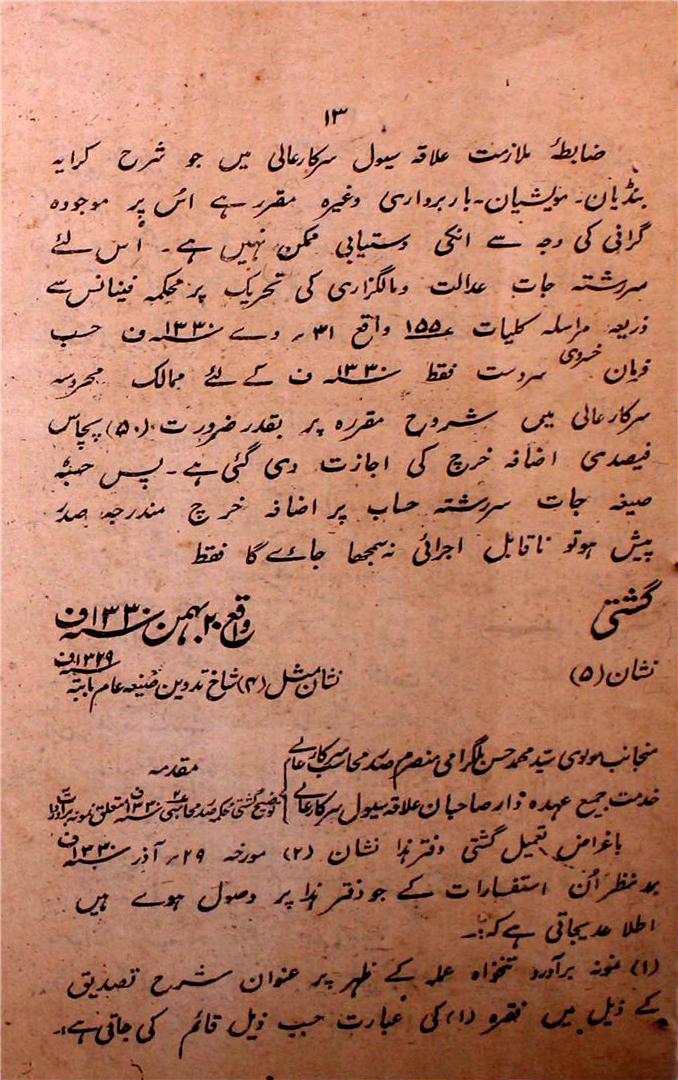 ۱۳
ضابطۂ ملازمت علاقہ سیول سرکارعالی میں جو شرح کرایہ
بنڈیان۔ مویشیان۔ باربرداری وغیرہ مقرر ہے اُس پر موجودہ
گرانی کی وجہ سے انکی دستیابی ممکن نہیں ہے۔ اس لئے
سررشتہ جات عدالت ومالگزاری کی تحریک پر محکمہ فینانس سے
ذریعہ مراسلہ کلیات ۱۵۵ واقع ۳۱۔ دے ۱۳۳۰ ف حسب
فرمان خسروی سردست فقط ۱۳۳۰ ف کے لئے ممالک محروسہ
سرکارعالی میں شروح مقررہ پر بقدر ضرورت (۵۰) پچاس
فیصدی اضافہ خرچ کی اجازت دی گئی ہے۔ پس
صیغہ جات سررشتہ حساب پر اضافہ خرچ مندرجہ صدر
پیش ہوتو ناقابل اجرائی نہ سمجھا جاے گا فقط
گشتی واقع ۲۰ بہمن ۱۳۳۰ف
نشان (۵) نشان مثل (۴) شاخ تدوین صیغہ عام بابتہ ۱۳۲۹ف
منجانب مولوی سید محمد حسن بلگرامی منصرم صدر محاسب سرکارعالے
مقدمہ
خدمت جمیع عہدہ داران صاحبان علاقہ سیول سرکارعالے توضیح گشتی محکمہ صدر محاسبی ۲ ۱۳۳۰ف متعلق نمونہ برآورد
باغراض تعمیل گشتی دفترہذا نشان (۲) مورخہ ۲۹۔ آذر ۱۳۳۰ف
مدنظر اُن استفسارات کے جو دفتر ہذا پر وصول ہوے ہیں
اطلاعدیجاتی ہے کہ:۔
(۱) نمونہ برآورد تنخواہ عملہ کے ظہر پر عنوان شرح تصدیق
کے ذیل میں فقرہ (۱) کی عبارت حسب ذیل قائم کی جاتی ہے:۔